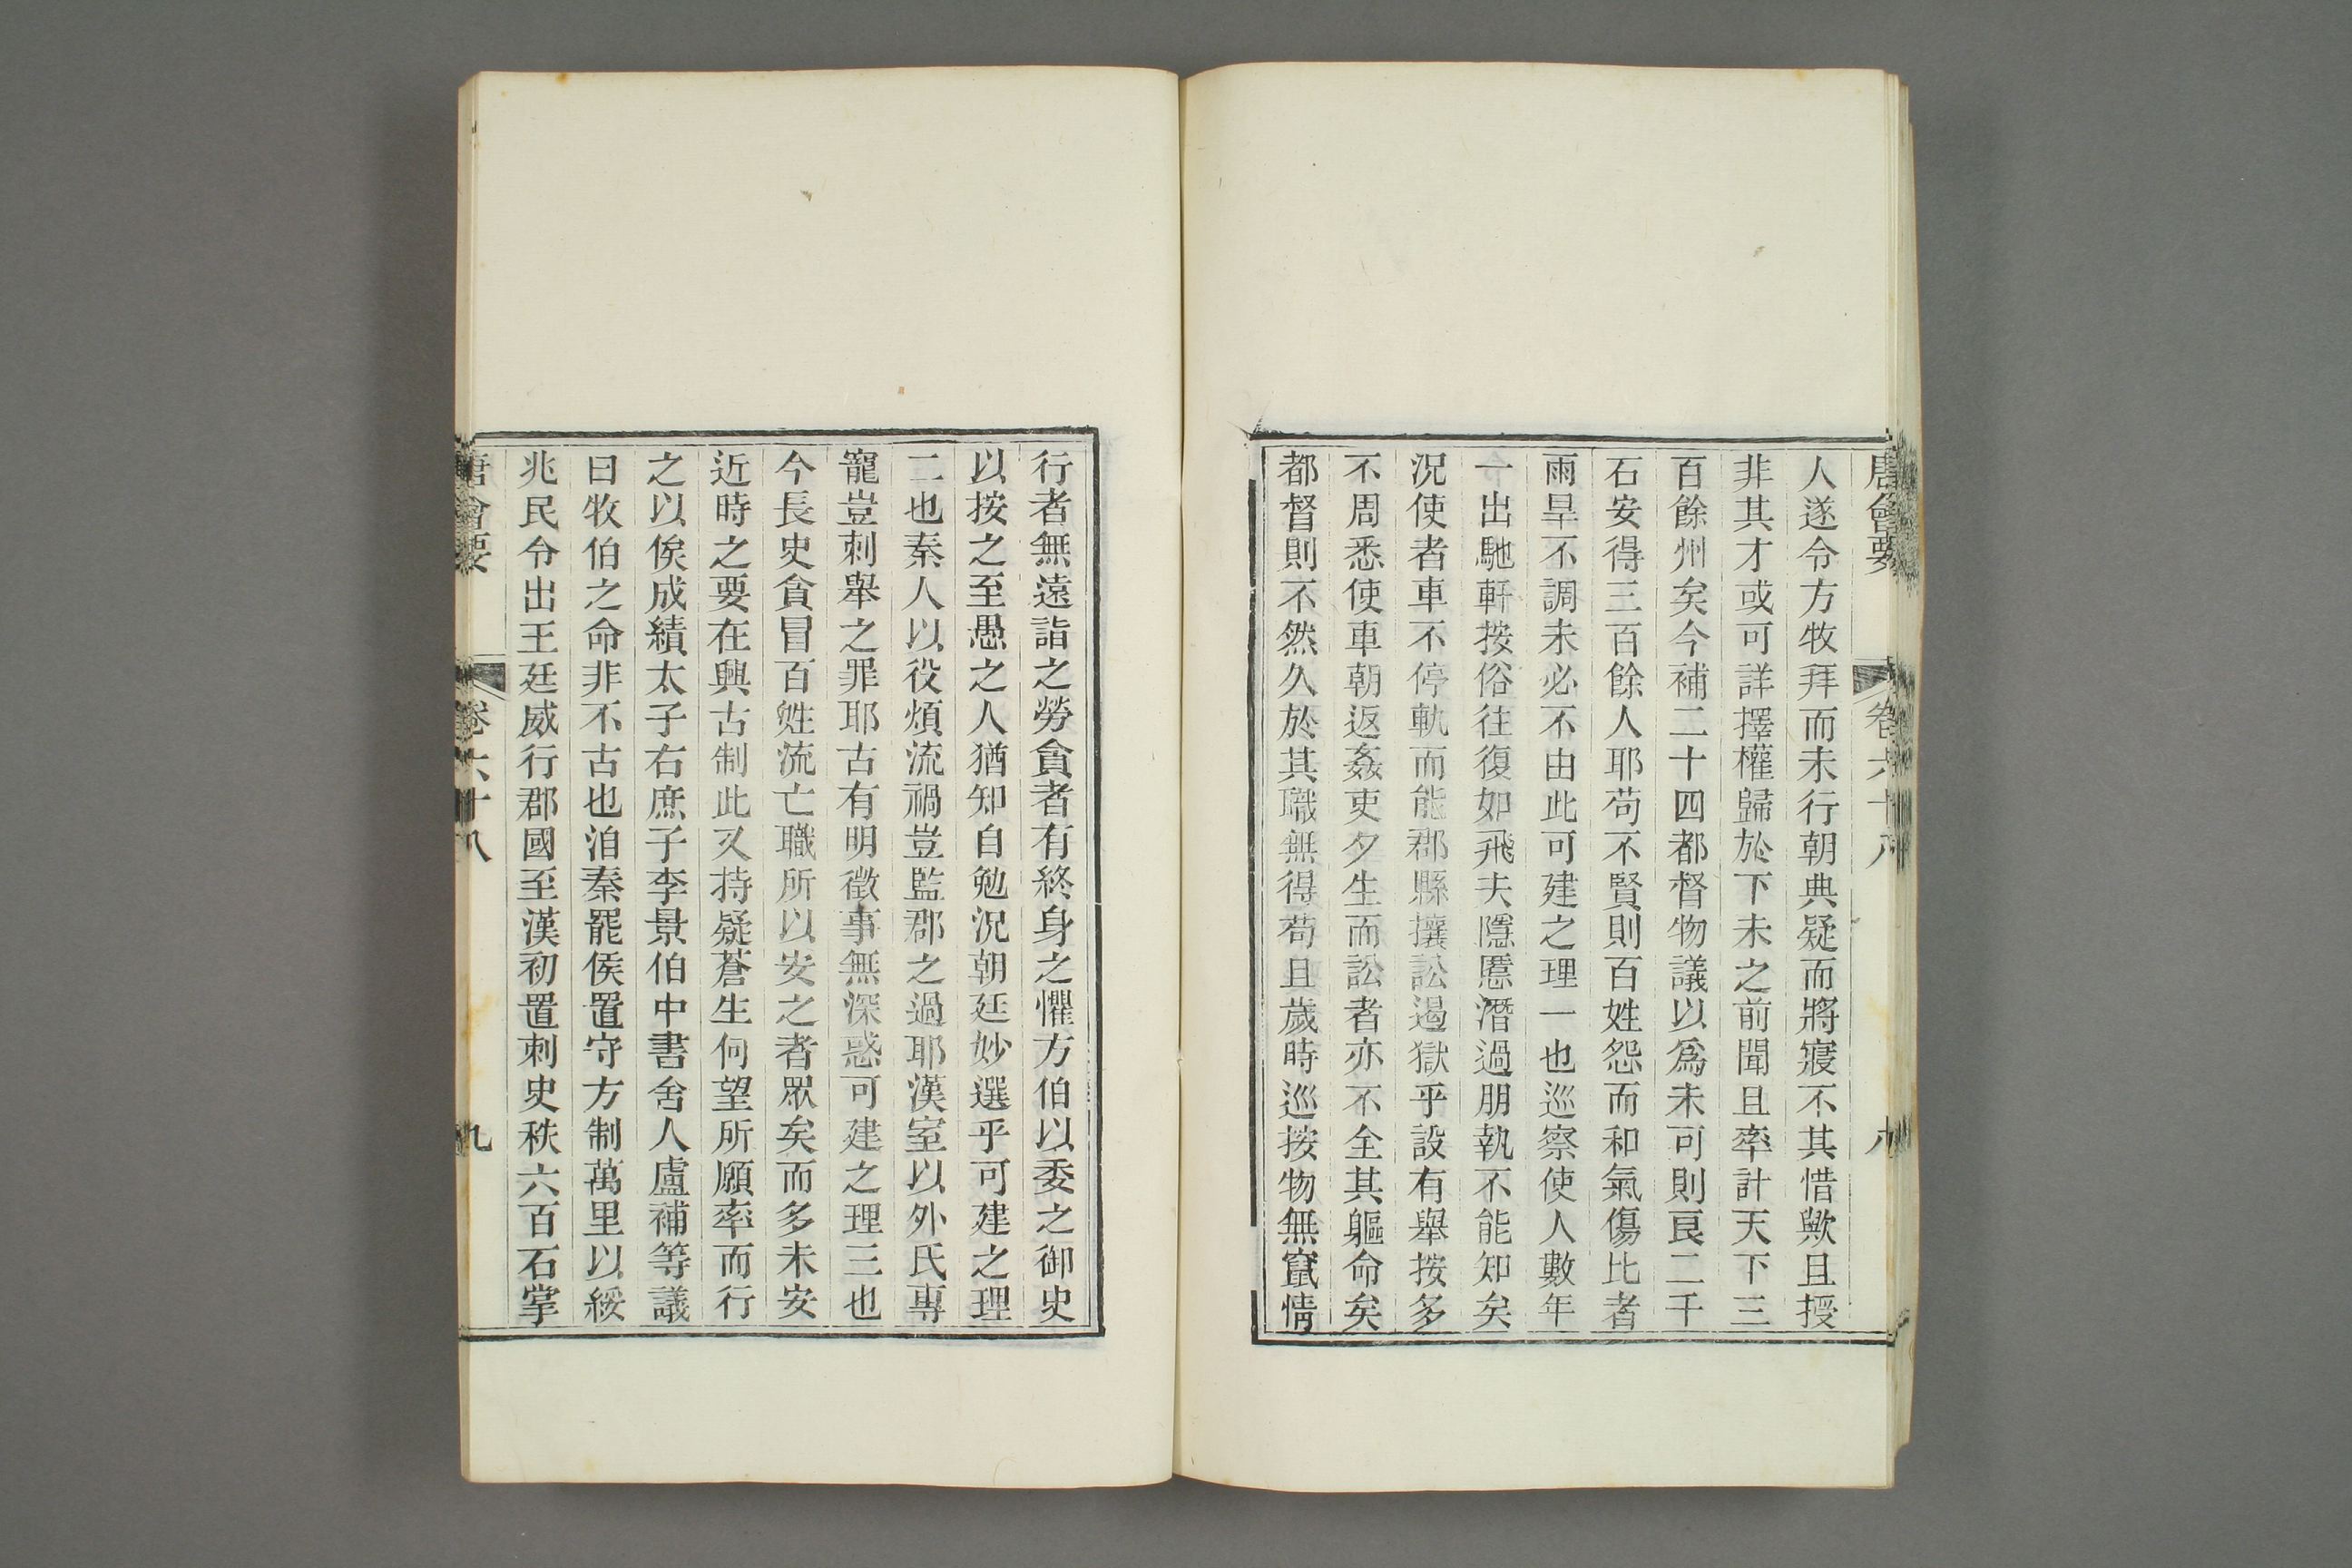 唐會要 卷六十八 八
人遂令方牧拜而未行朝典疑而將寢不其惜歟且授
非其才或可詳擇權歸於下未之前聞且率計天下三
百餘州矣今補二十四都督物議以爲未可則良二千
石安得三百餘人耶苟不賢則百姓怨而和氣傷比者
雨旱不調未必不由此可建之理一也巡察使人數年
一出馳軒按俗往復如飛夫隱慝潛過朋執不能知矣
況使者車不停軌而能郡縣攘訟遏獄乎設有舉按多
不周悉使車朝返姦吏夕生而訟者亦不全其軀命矣
都督則不然久於其職無得苟且歲時巡按物無竄情
行者無遠詣之勞貪者有終身之懼方伯以委之御史
以按之至愚之人猶知自勉況朝廷妙選乎可建之理
二也秦人以役煩流禍豈監郡之過耶漢室以外氏專
寵豈刺舉之罪耶古有明徵事無深惑可建之理三也
今長史貪冒百姓流亡職所以安之者眾矣而多未安
近時之要在興古制此又持疑蒼生何望所願率而行
之以俟成績太子右庶子李景伯中書舍人盧補等議
曰牧伯之命非不古也洎秦罷侯置守方制萬里以綏
兆民令出王廷威行郡國至漢初置刺史秩六百石掌
唐會要 卷六十八 九